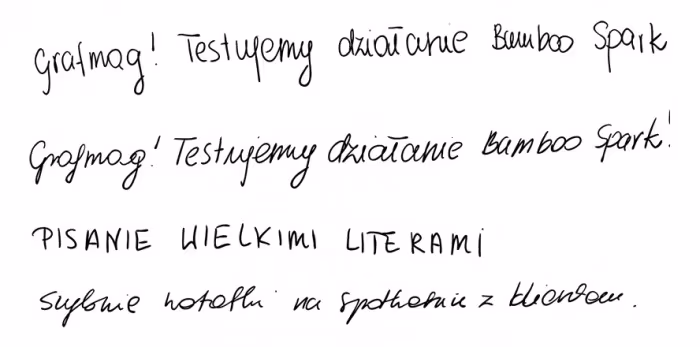 Grafmag! Testujemy działanie Bamboo Spark
Grafmag! Testujemy działanie Bamboo Spark!
PISANIE WIELKIMI LITERAMI
Szybkie notatki na spotkaniu z klientem.